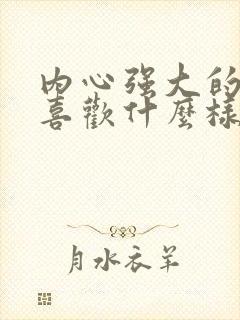 內心强大的
喜歡什麼樣
月水衣羊